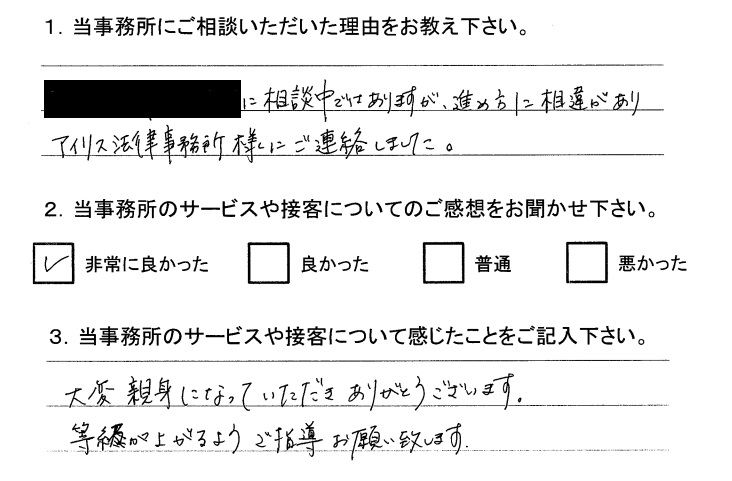 1. 当事務所にご相談いただいた理由をお教え下さい。
に相談中ではありますが、進め方に相違があり
アイリス法律事務所様にご連絡しました。
2. 当事務所のサービスや接客についてのご感想をお聞かせ下さい。
非常に良かった 良かった 普通 悪かった
3. 当事務所のサービスや接客について感じたことをご記入下さい。
大変親身になっていただきありがとうございます。
等級が上がるようご指導お願い致します.